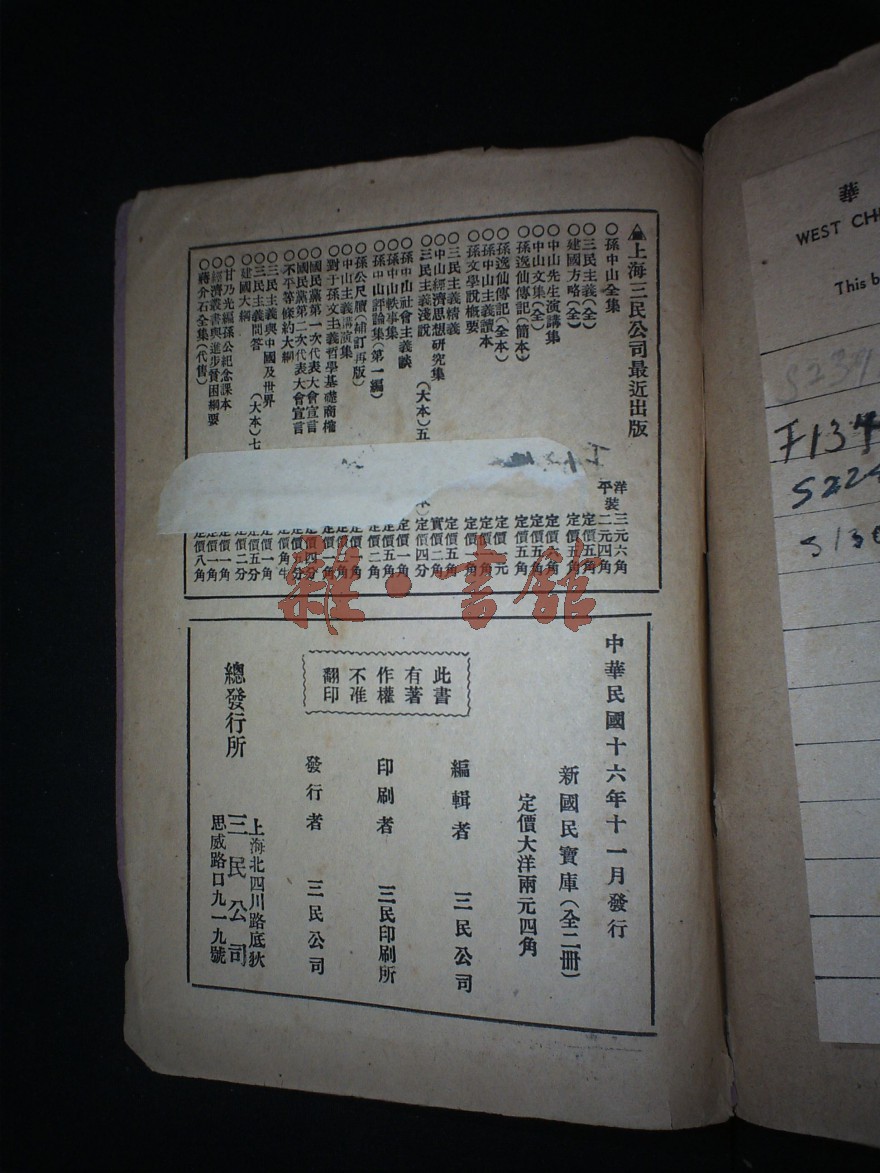 上海三民公司最近出版
○孫中山全集
洋裝 三元六角
平裝 二元四角
○三民主義(全)
定價五角
○建國方略(全)
定價五角
○中山先生演講集
定價六角
○中山文集(全)
定價五角
○孫逸仙傳記(簡本)
定價五角
○孫逸仙傳記(全本)
○孫中山主義讀本
○孫文學說概要
○三民主義精義
定價五角
○中山經濟思想研究集
實價二角
○三民主義淺說(大本)五
定價四分
○孫中山社會主義談
定價一角
○孫中山軼事集
定價五角
○孫中山評論集(第一編)
定價二角
○孫公尺牘(補訂再版)
○中山主義講演集
○對于孫文主義哲學基礎商榷
定價一角
○國民黨第一次代表大會宣言
定價四分
○國民黨第二次代表大會宣言
定價五分
○不平等條約大綱
○三民主義與中國及世界
定價一角
○三民主義問答(大本)七
定價五分
○建國大綱
定價二分
○甘乃光編孫公紀念課本
定價一角
○經濟叢書與進步貧困綱要
定價一角
○蔣介石全集(代售)
定價八角
中華民國十六年十一月發行
新國民寶庫(全二冊)
定價大洋兩元四角
編輯者 三民公司
印刷者 三民印刷所
發行者 三民公司
此書
有著
作權
不准
翻印
總發行所
上海北四川路底狄
三民公司
思威路口九一九號
雜·書館
華
WEST CH
This b
S239
F134
S224
S130